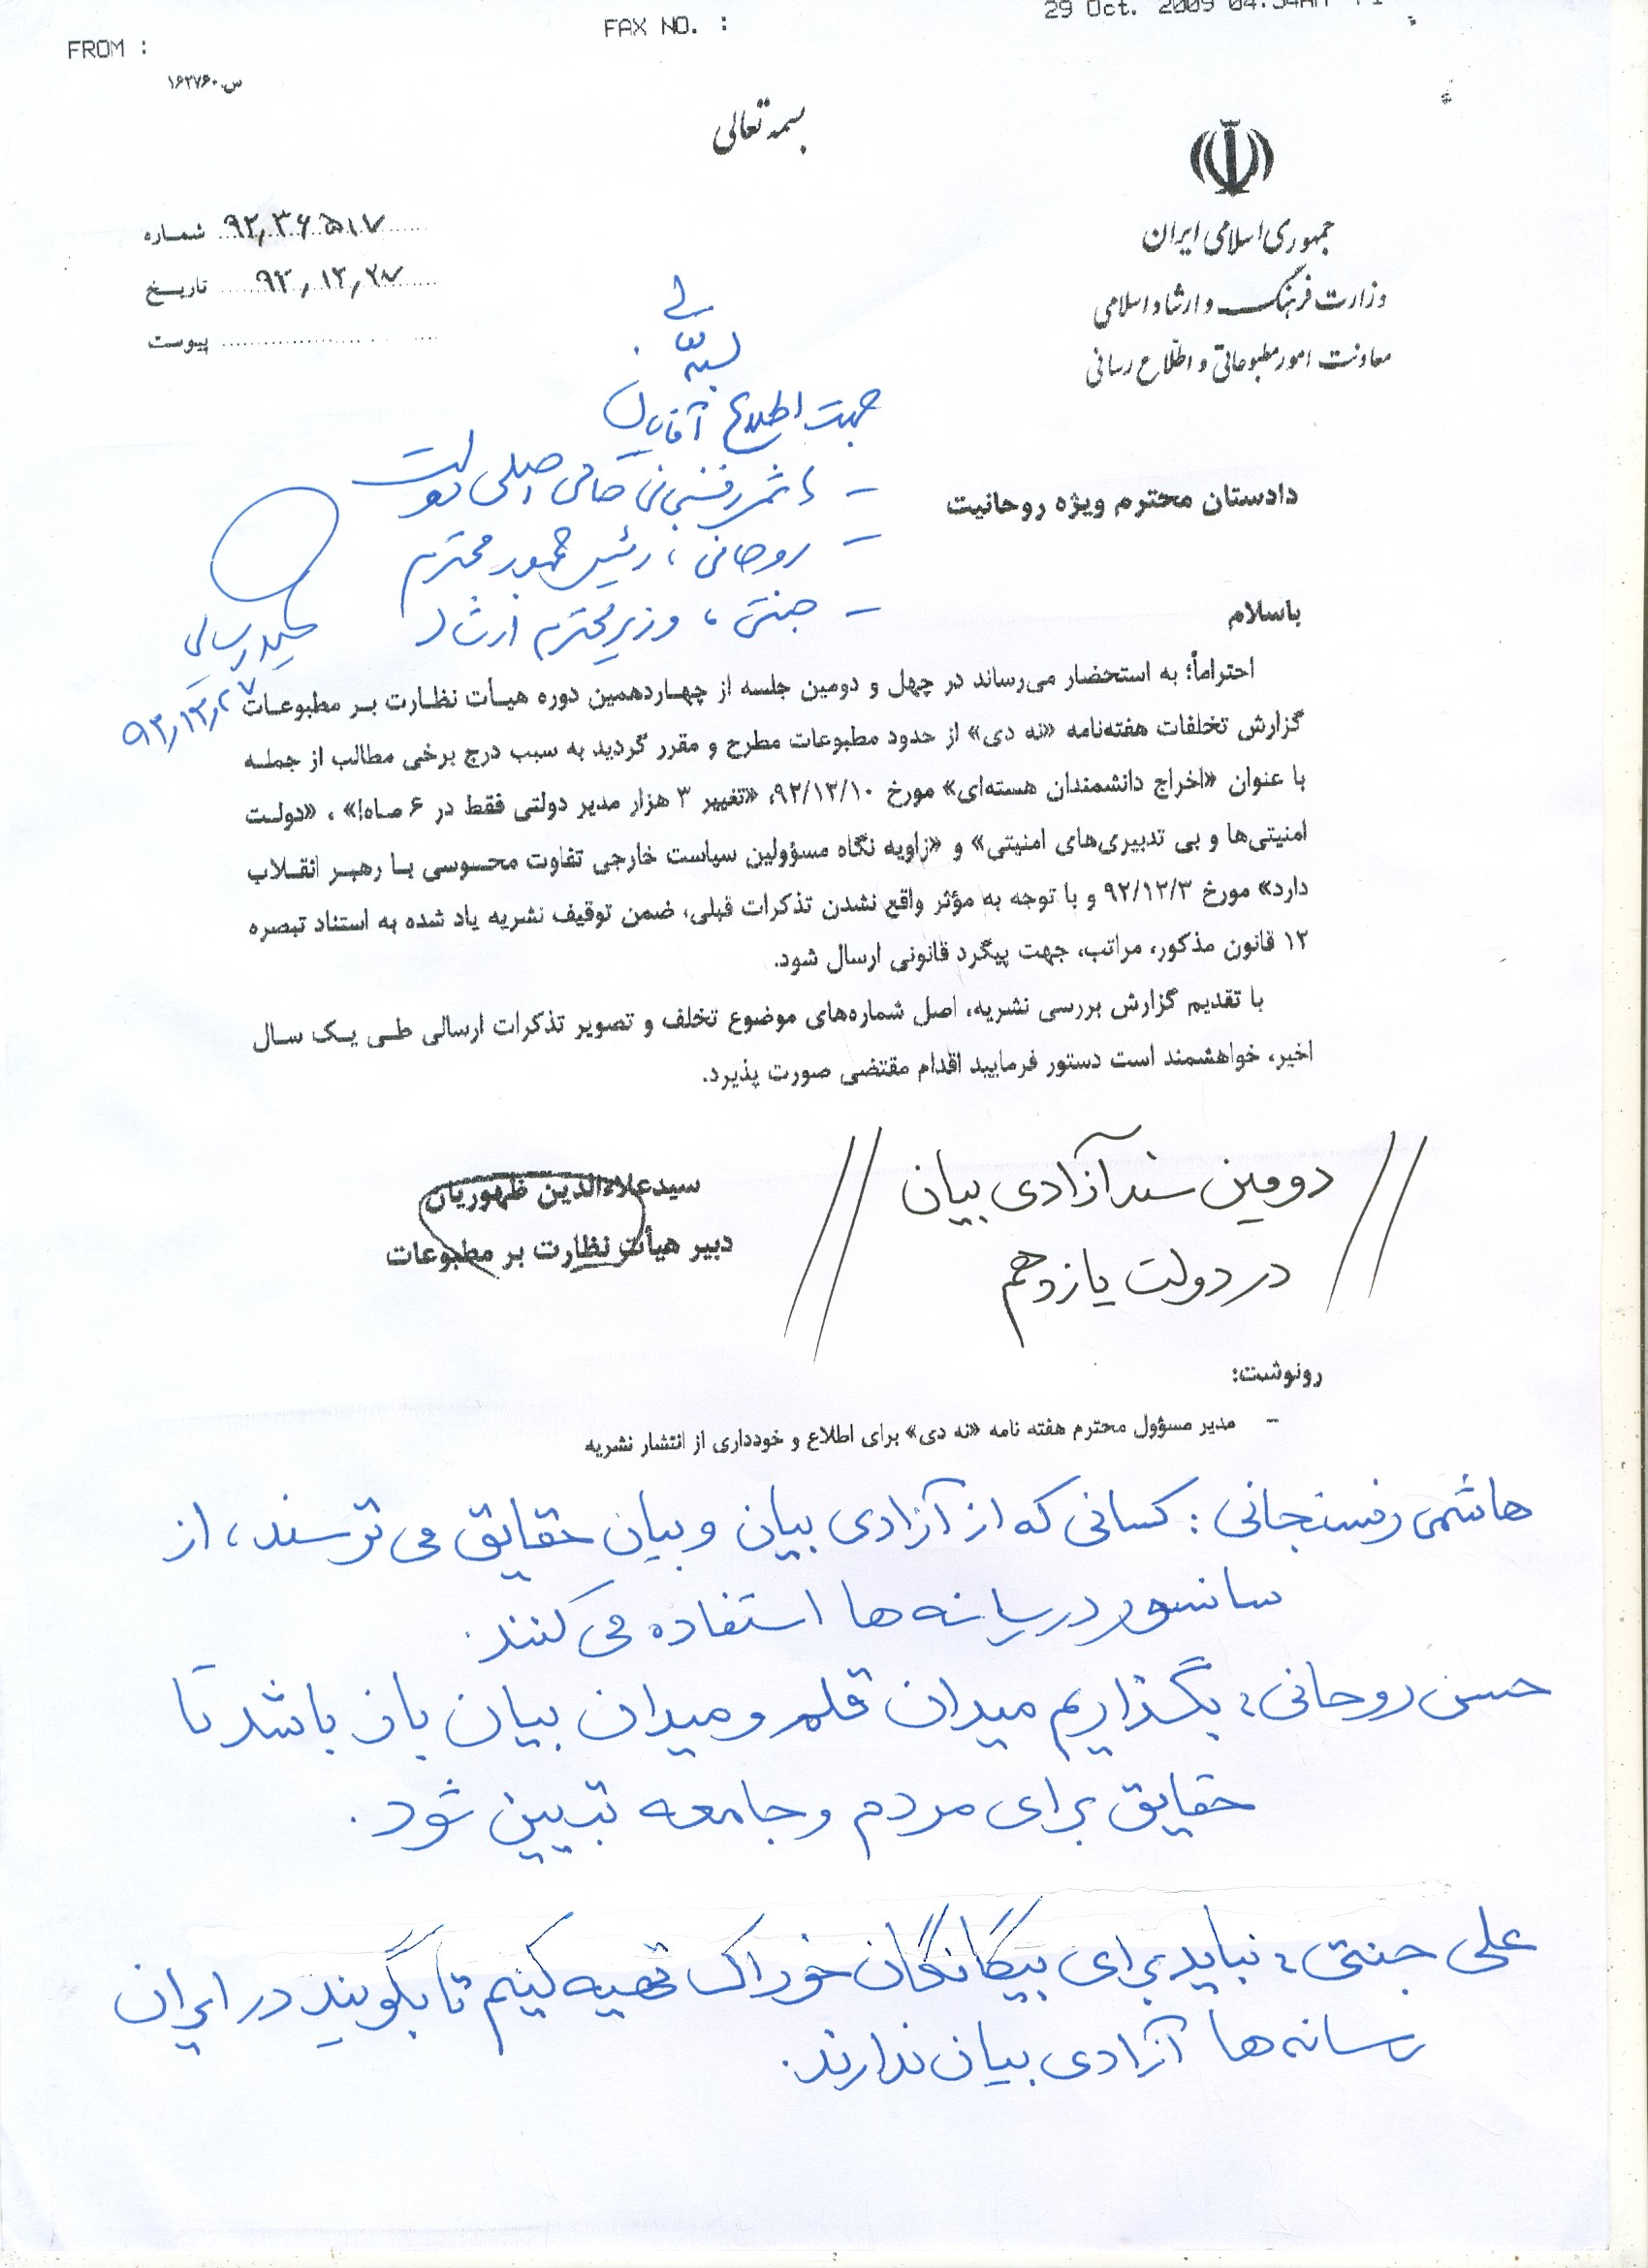 FROM :
FAX NO. :
29 Oct. 2009
س.۱۶۲۷۶۰
بسمه تعالی
جمهوری اسلامی ایران
وزارت فرهنگ و ارشاد اسلامی
معاونت امور مطبوعاتی و اطلاع رسانی
شماره ۹۲٫۳۶۵۱۷
تاریخ ۹۲٫۱۲٫۲۷
پیوست
بسمه تعالی
جهت اطلاع آقایان
- هاشمی رفسنجانی حامی اصلی دولت
- روحانی، رئیس جمهور محترم
- جنتی، وزیر محترم ارشاد
حمید رسایی
۹۲٫۱۲٫۲۷
دادستان محترم ویژه روحانیت
باسلام
احتراماً؛ به استحضار می‌رساند در چهل و دومین جلسه از چهاردهمین دوره هیأت نظارت بر مطبوعات
گزارش تخلفات هفته‌نامه «نه دی» از حدود مطبوعات مطرح و مقرر گردید به سبب درج برخی مطالب از جمله
با عنوان «اخراج دانشمندان هسته‌ای» مورخ ۹۲/۱۲/۱۰، «تغییر ۳ هزار مدیر دولتی فقط در ۶ ماه!» ، «دولت
امنیتی‌ها و بی تدبیری‌های امنیتی» و «زاویه نگاه مسؤولین سیاست خارجی تفاوت محسوسی با رهبر انقلاب
دارد» مورخ ۹۲/۱۲/۳ و با توجه به مؤثر واقع نشدن تذکرات قبلی، ضمن توقیف نشریه یاد شده به استناد تبصره
۱۲ قانون مذکور، مراتب، جهت پیگرد قانونی ارسال شود.
با تقدیم گزارش بررسی نشریه، اصل شماره‌های موضوع تخلف و تصویر تذکرات ارسالی طی یک سال
اخیر، خواهشمند است دستور فرمایید اقدام مقتضی صورت پذیرد.
سیدعلاءالدین ظهوریان
دبیر هیأت نظارت بر مطبوعات
دومین سند آزادی بیان
در دولت یازدهم
رونوشت:
- مدیر مسؤول محترم هفته نامه «نه دی» برای اطلاع و خودداری از انتشار نشریه
هاشمی رفسنجانی: کسانی که از آزادی بیان و بیان حقایق می ترسند، از
سانسور در رسانه ها استفاده می کنند.
حسن روحانی: بگذاریم میدان قلم و میدان بیان باز باشد تا
حقایق برای مردم و جامعه تبیین شود.
علی جنتی: نباید برای بیگانگان خوراک تهیه کنیم تا بگویند در ایران
رسانه ها آزادی بیان ندارند.